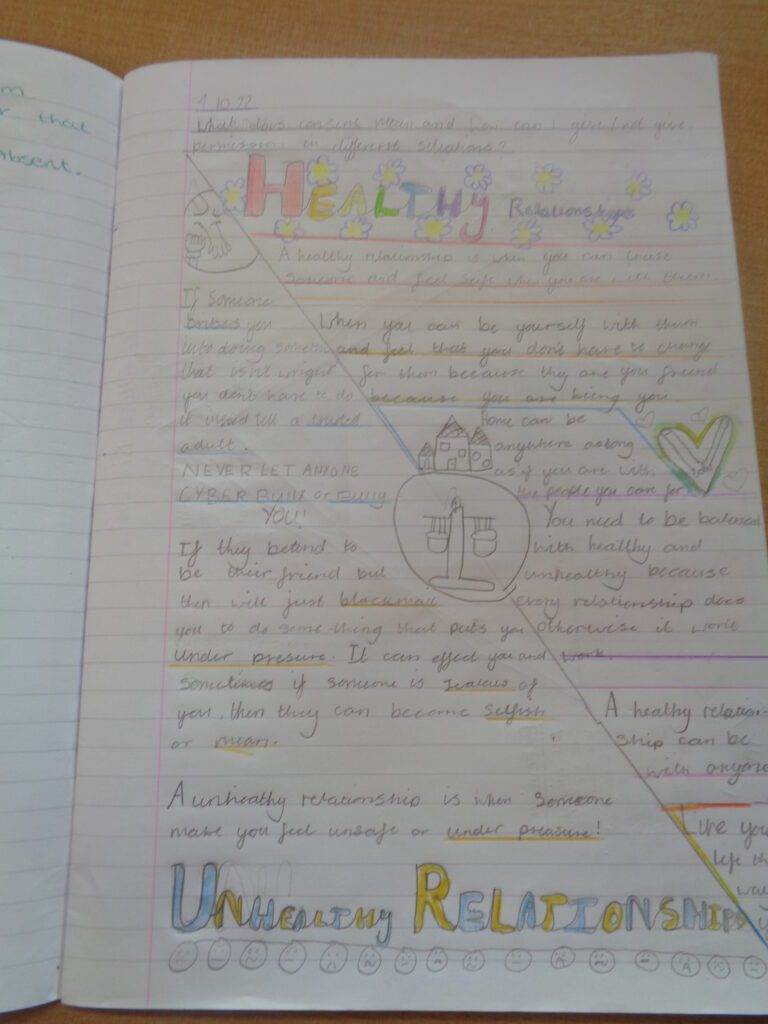 that
absent.
1.10.22
What does consent mean and how can I give/not give
permission in different situations?
HEALTHY Relationships
A healthy relationship is when you can
someone and feel safe when you are with them.
When you can be yourself with them
and feel that you don't have to change
for them because they are you friend
because you are being you.
home can be
anywhere aslong
as if you are with
the people you care for
You need to be balanced
with healthy and
unhealthy because
every relationship does
otherwise it won't
work.
A healthy relation-
ship can be
with anyone
Like you
If someone
bribes you
into doing
that isn't wright
you don't have to do
it insted tell a trusted
adult.
NEVER LET ANYONE
CYBER BULLY or Bully
YOU!
If they betend to
be their friend but
then will just blackmail
you to do something that puts you
under presure. It can effect you and
sometimes if someone is Jealeus of
you, then they can become selfish
or mean.
A unhealthy relationship is when someone
make you feel unsafe or under preasure!
UNHEALTHY RELATIONSHIPS